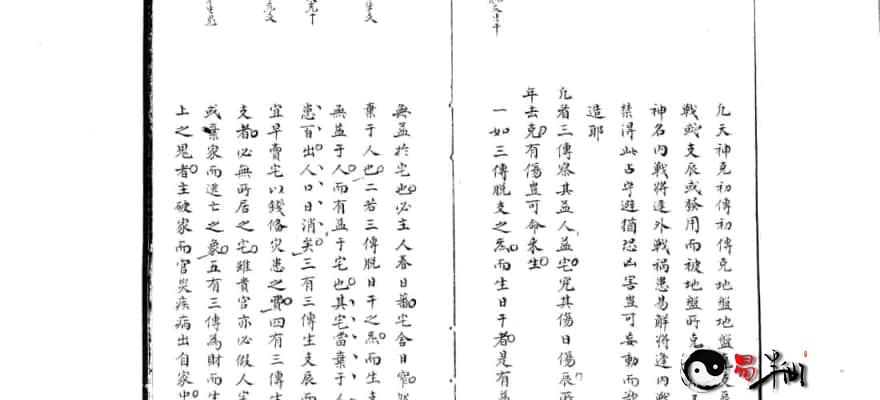 凡天神克初傳初傳克地盤地盤
戰或支辰或發用而被地盤所克
神名內戰將逢外戰禍患易解將逢內戰
禁得此占守避猶恐凶害豈可妄動而
造耶
凡若三傳察其益人益宅究其傷日傷辰
年去克有傷豈可命來生
一如三傳脫支之炁而生日干者是有
無益於宅也必主人眷日蕃宅舍日窄
棄于人也二若三傳脫日干之炁而生支
無益于人而有益于宅也其宅當棄于人
患百出人口日消矣三有三傳生支辰而
宜早賣宅以錢備災患之費四有三傳生
支者必無所居之宅雖貴官亦必僦人宅
或棄家而逃亡之象五有三傳為財而生
上之鬼者主破家而官災疾病出自家中
易